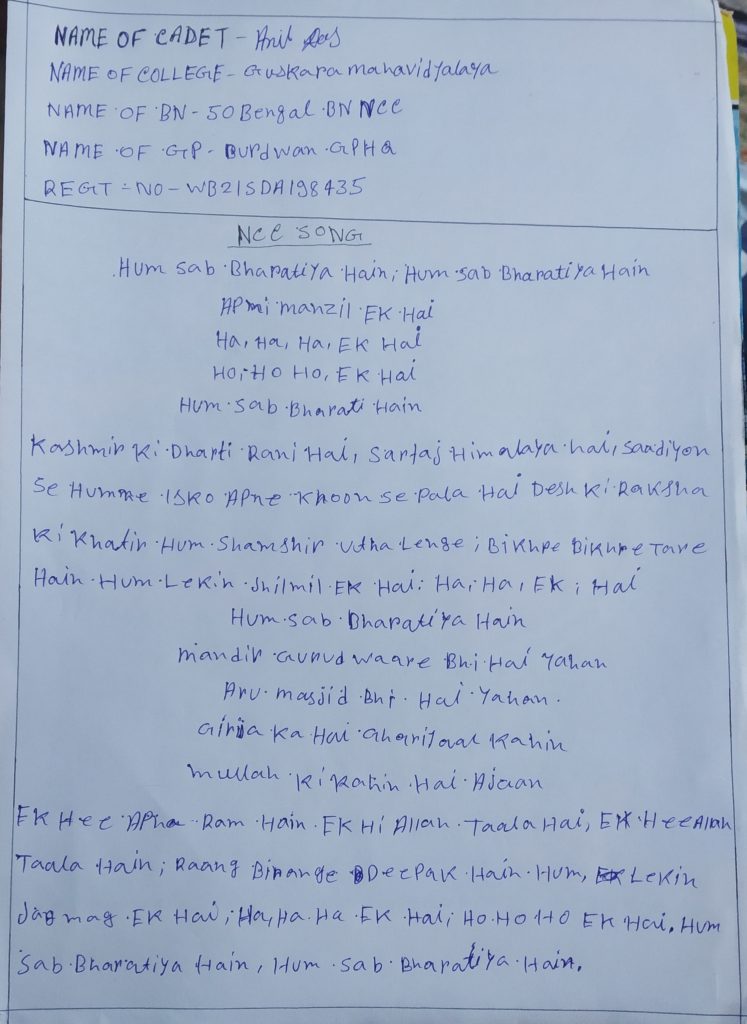 NAME OF CADET - Anil Das
NAME OF COLLEGE - Guskara mahavidyalaya
NAME OF BN - 50 Bengal BN NCC
NAME OF GP - Burdwan GPHQ
REGT - NO - WB21SDA198435
NCC SONG
Hum sab Bharatiya Hain, Hum sab Bharatiya Hain
APni manzil EK Hai
Ha, Ha, Ha, EK Hai
HO, HO HO, EK Hai
Hum sab Bharati Hain
Kashmir Ki Dharti Rani Hai, Sartaj Himalaya hai, saadiyon
Se Humne ISKO APne Khoon se Pala Hai Desh Ki Raksha
Ki Khatir Hum Shamshir utha Lenge; Bikhre Bikhre Tare
Hain Hum LeKin Jhilmil EK Hai: Ha, Ha, EK; Hai
Hum sab Bharatiya Hain
mandir Gurudwaare Bhi Hai Yahan
Aru masjid Bhi Hai Yahan.
Girija Ka Hai Ghariyaal Kahin
mullah Ki Kahin Hai Ajaan
EK Hee APna Ram Hain EK Hi Allah Taala Hai, EK Hee Allah
Taala Hain; Raang Birange Deepak Hain Hum, LeKin
Jag mag EK Hai; Ha, Ha Ha EK Hai; HO HO HO EK Hai. Hum
Sab Bharatiya Hain, Hum sab Bharatiya Hain.